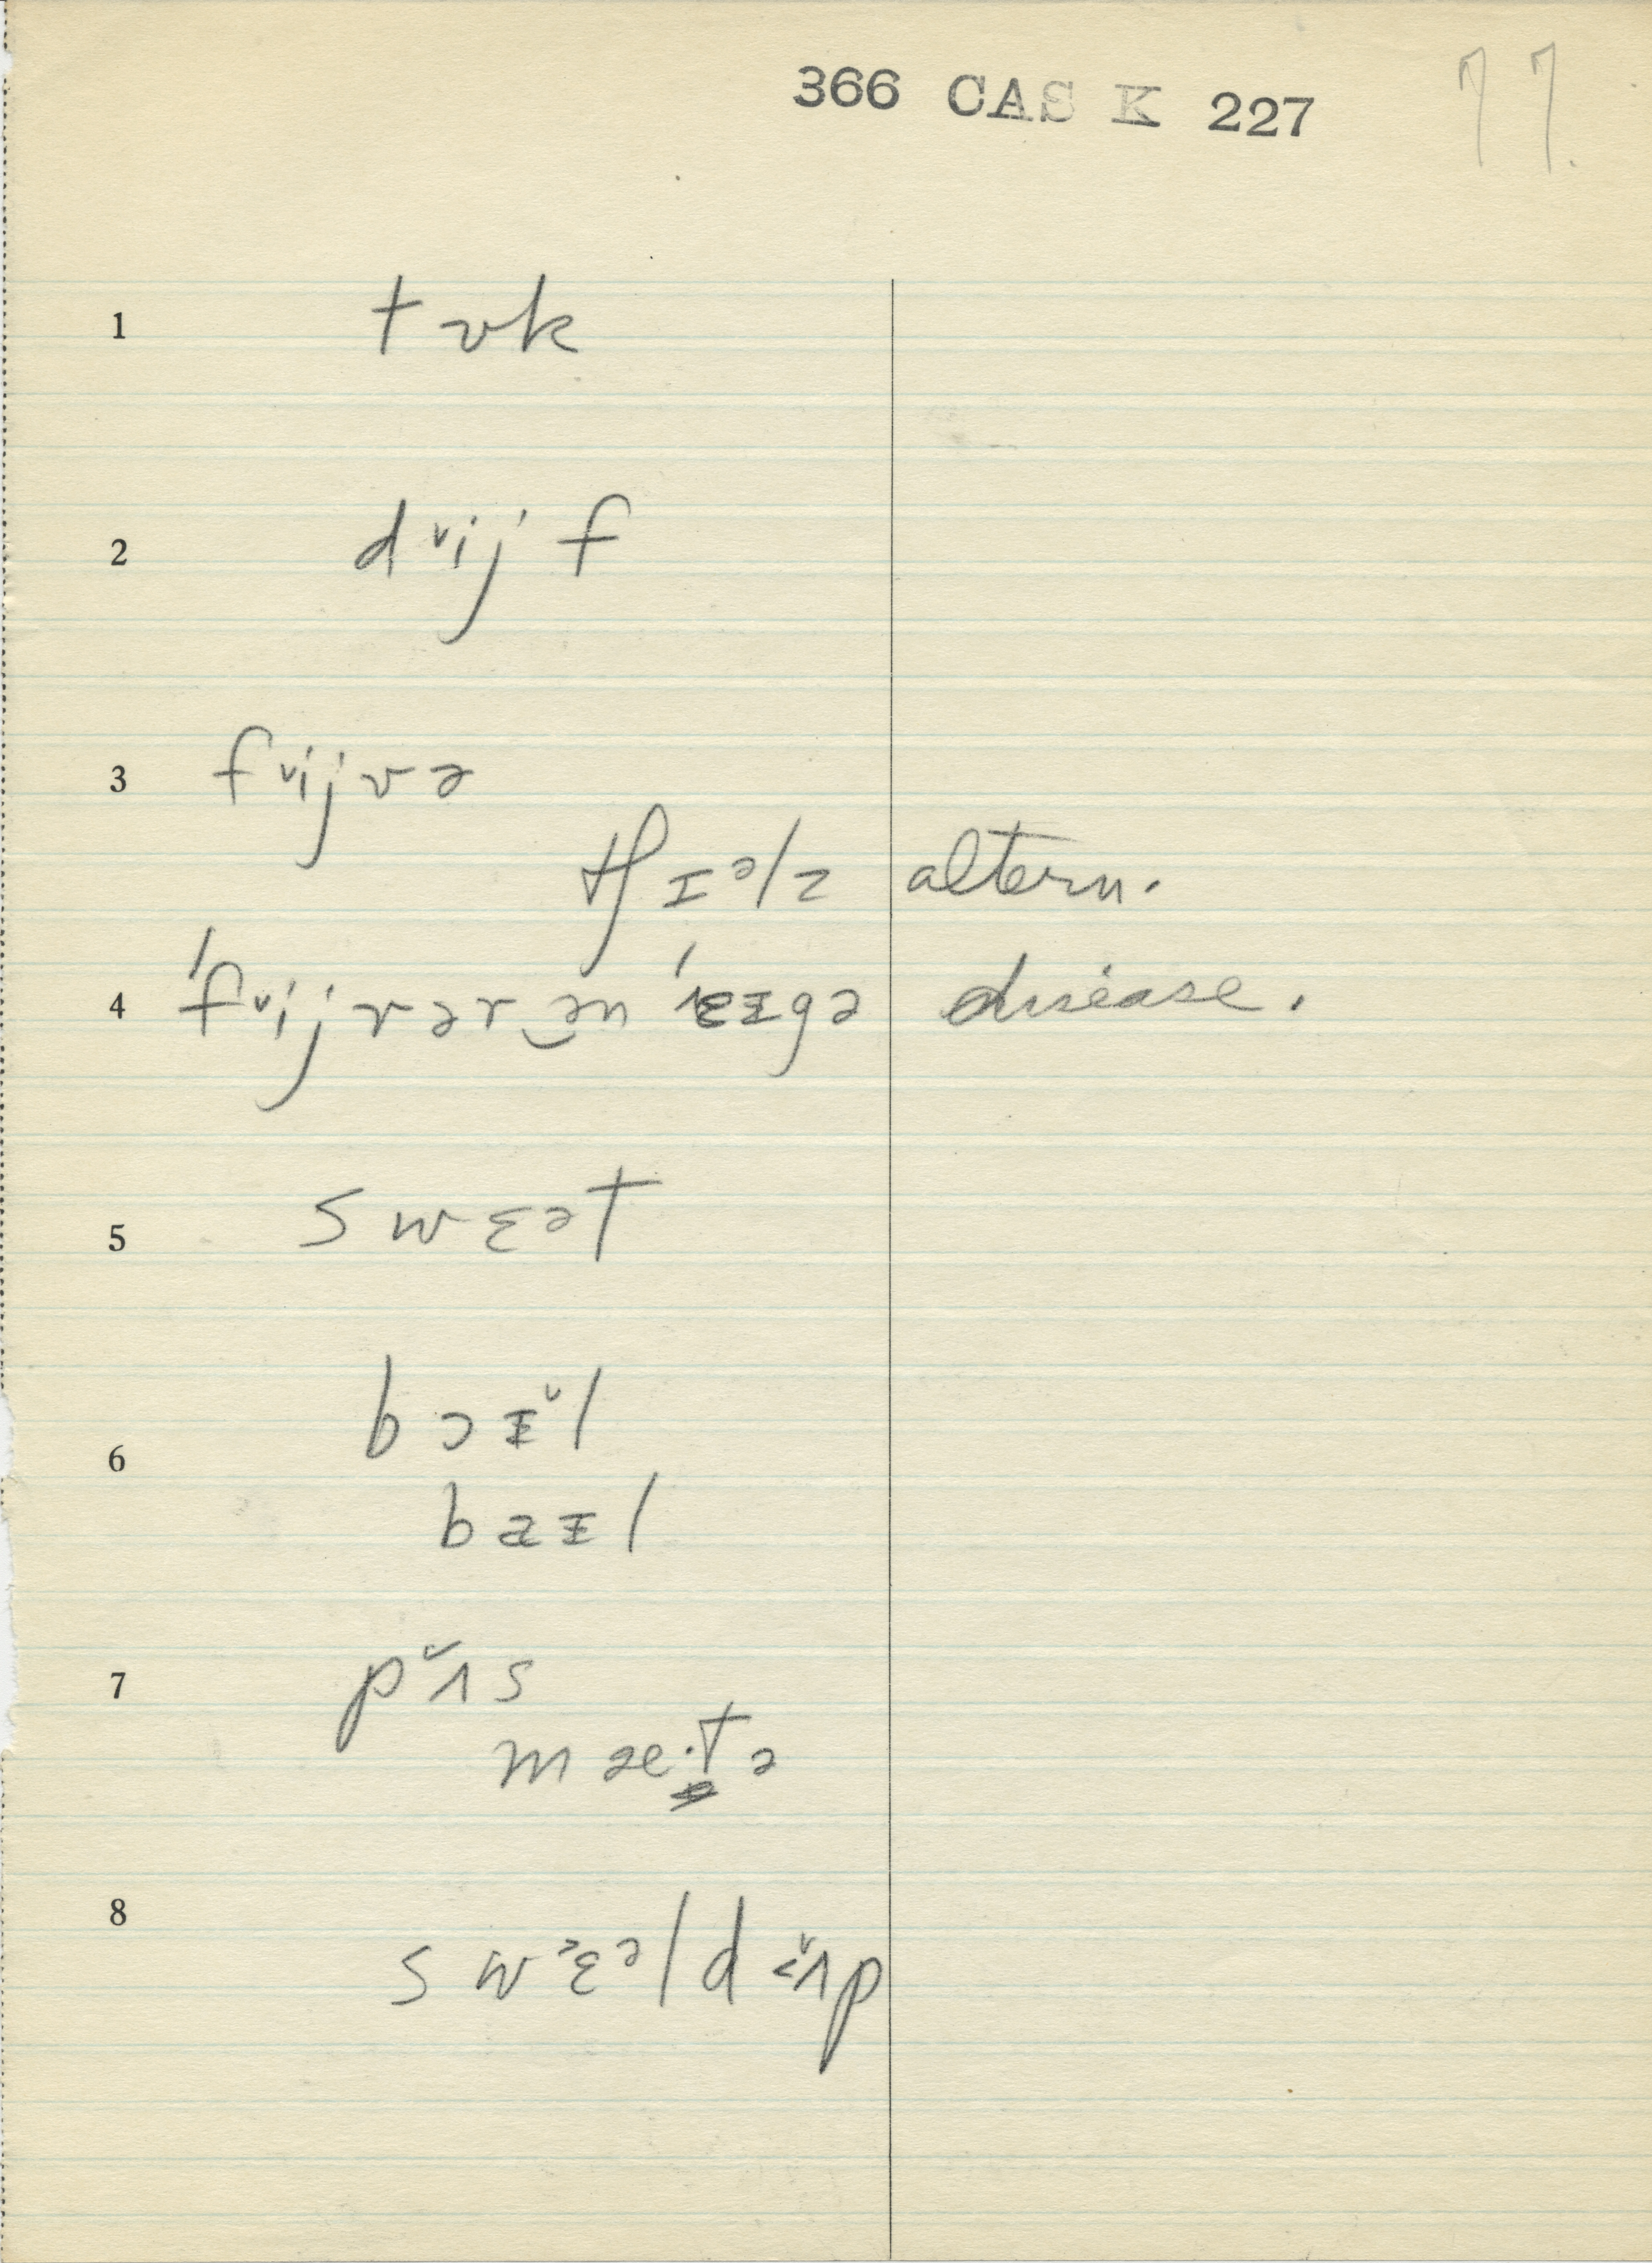 366 CAS K 227
77.
1 tʊk
2 dᵛijf
3 fᵛijvə
tʃɪᵊlz altern.
4 'fᵛijvər‿ən 'eɪgə disease.
5 swɛət
6 bɔɪ̵̌l
baɪ̵l
7 pʌ̌s
mæ·tə
8 swɛᵊld ʌ̌p